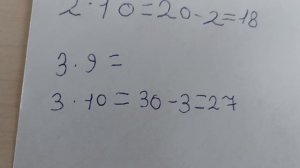 2 · 10 = 20 - 2 = 18
3 · 9 =
3 · 10 = 30 - 3 = 27